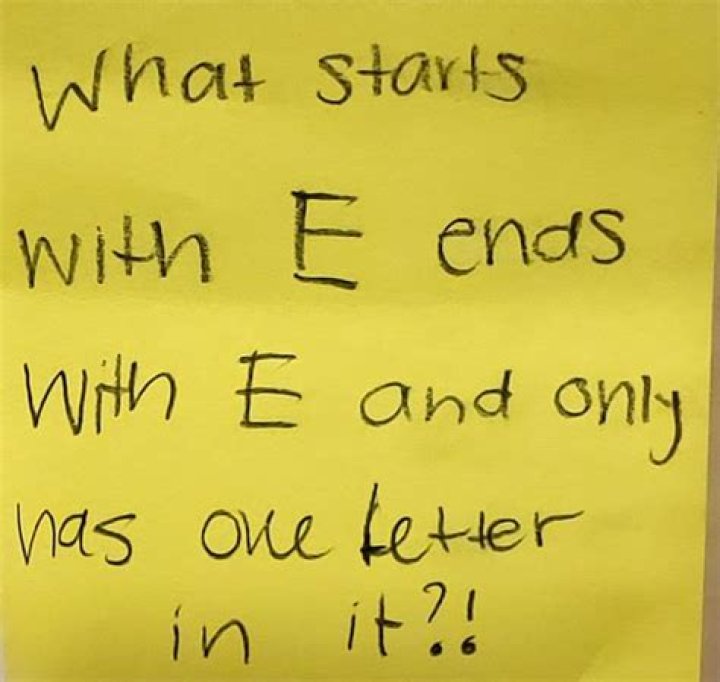 What starts
with E ends
with E and only
has one letter
in it?!